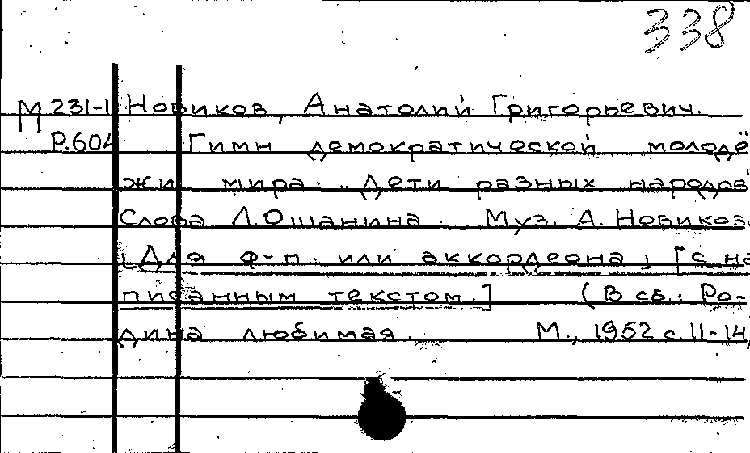 338
М 231-1 Новиков, Анатолий Григорьевич.
Р.604 Гимн демократической молодё
жи мира. Дети разных народов
Слова Л. Ошанина. Муз. А. Новикова.
[Для ф-п. или аккордеона, [с на
писанным текстом.] (В сб.: Ро-
дина любимая. М., 1952 с. 11-14,